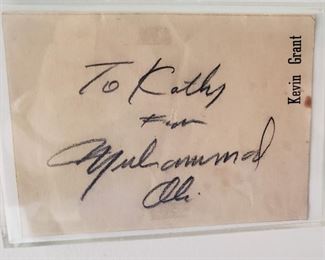 To Kathy
From
Muhammad
Ali
Kevin Grant